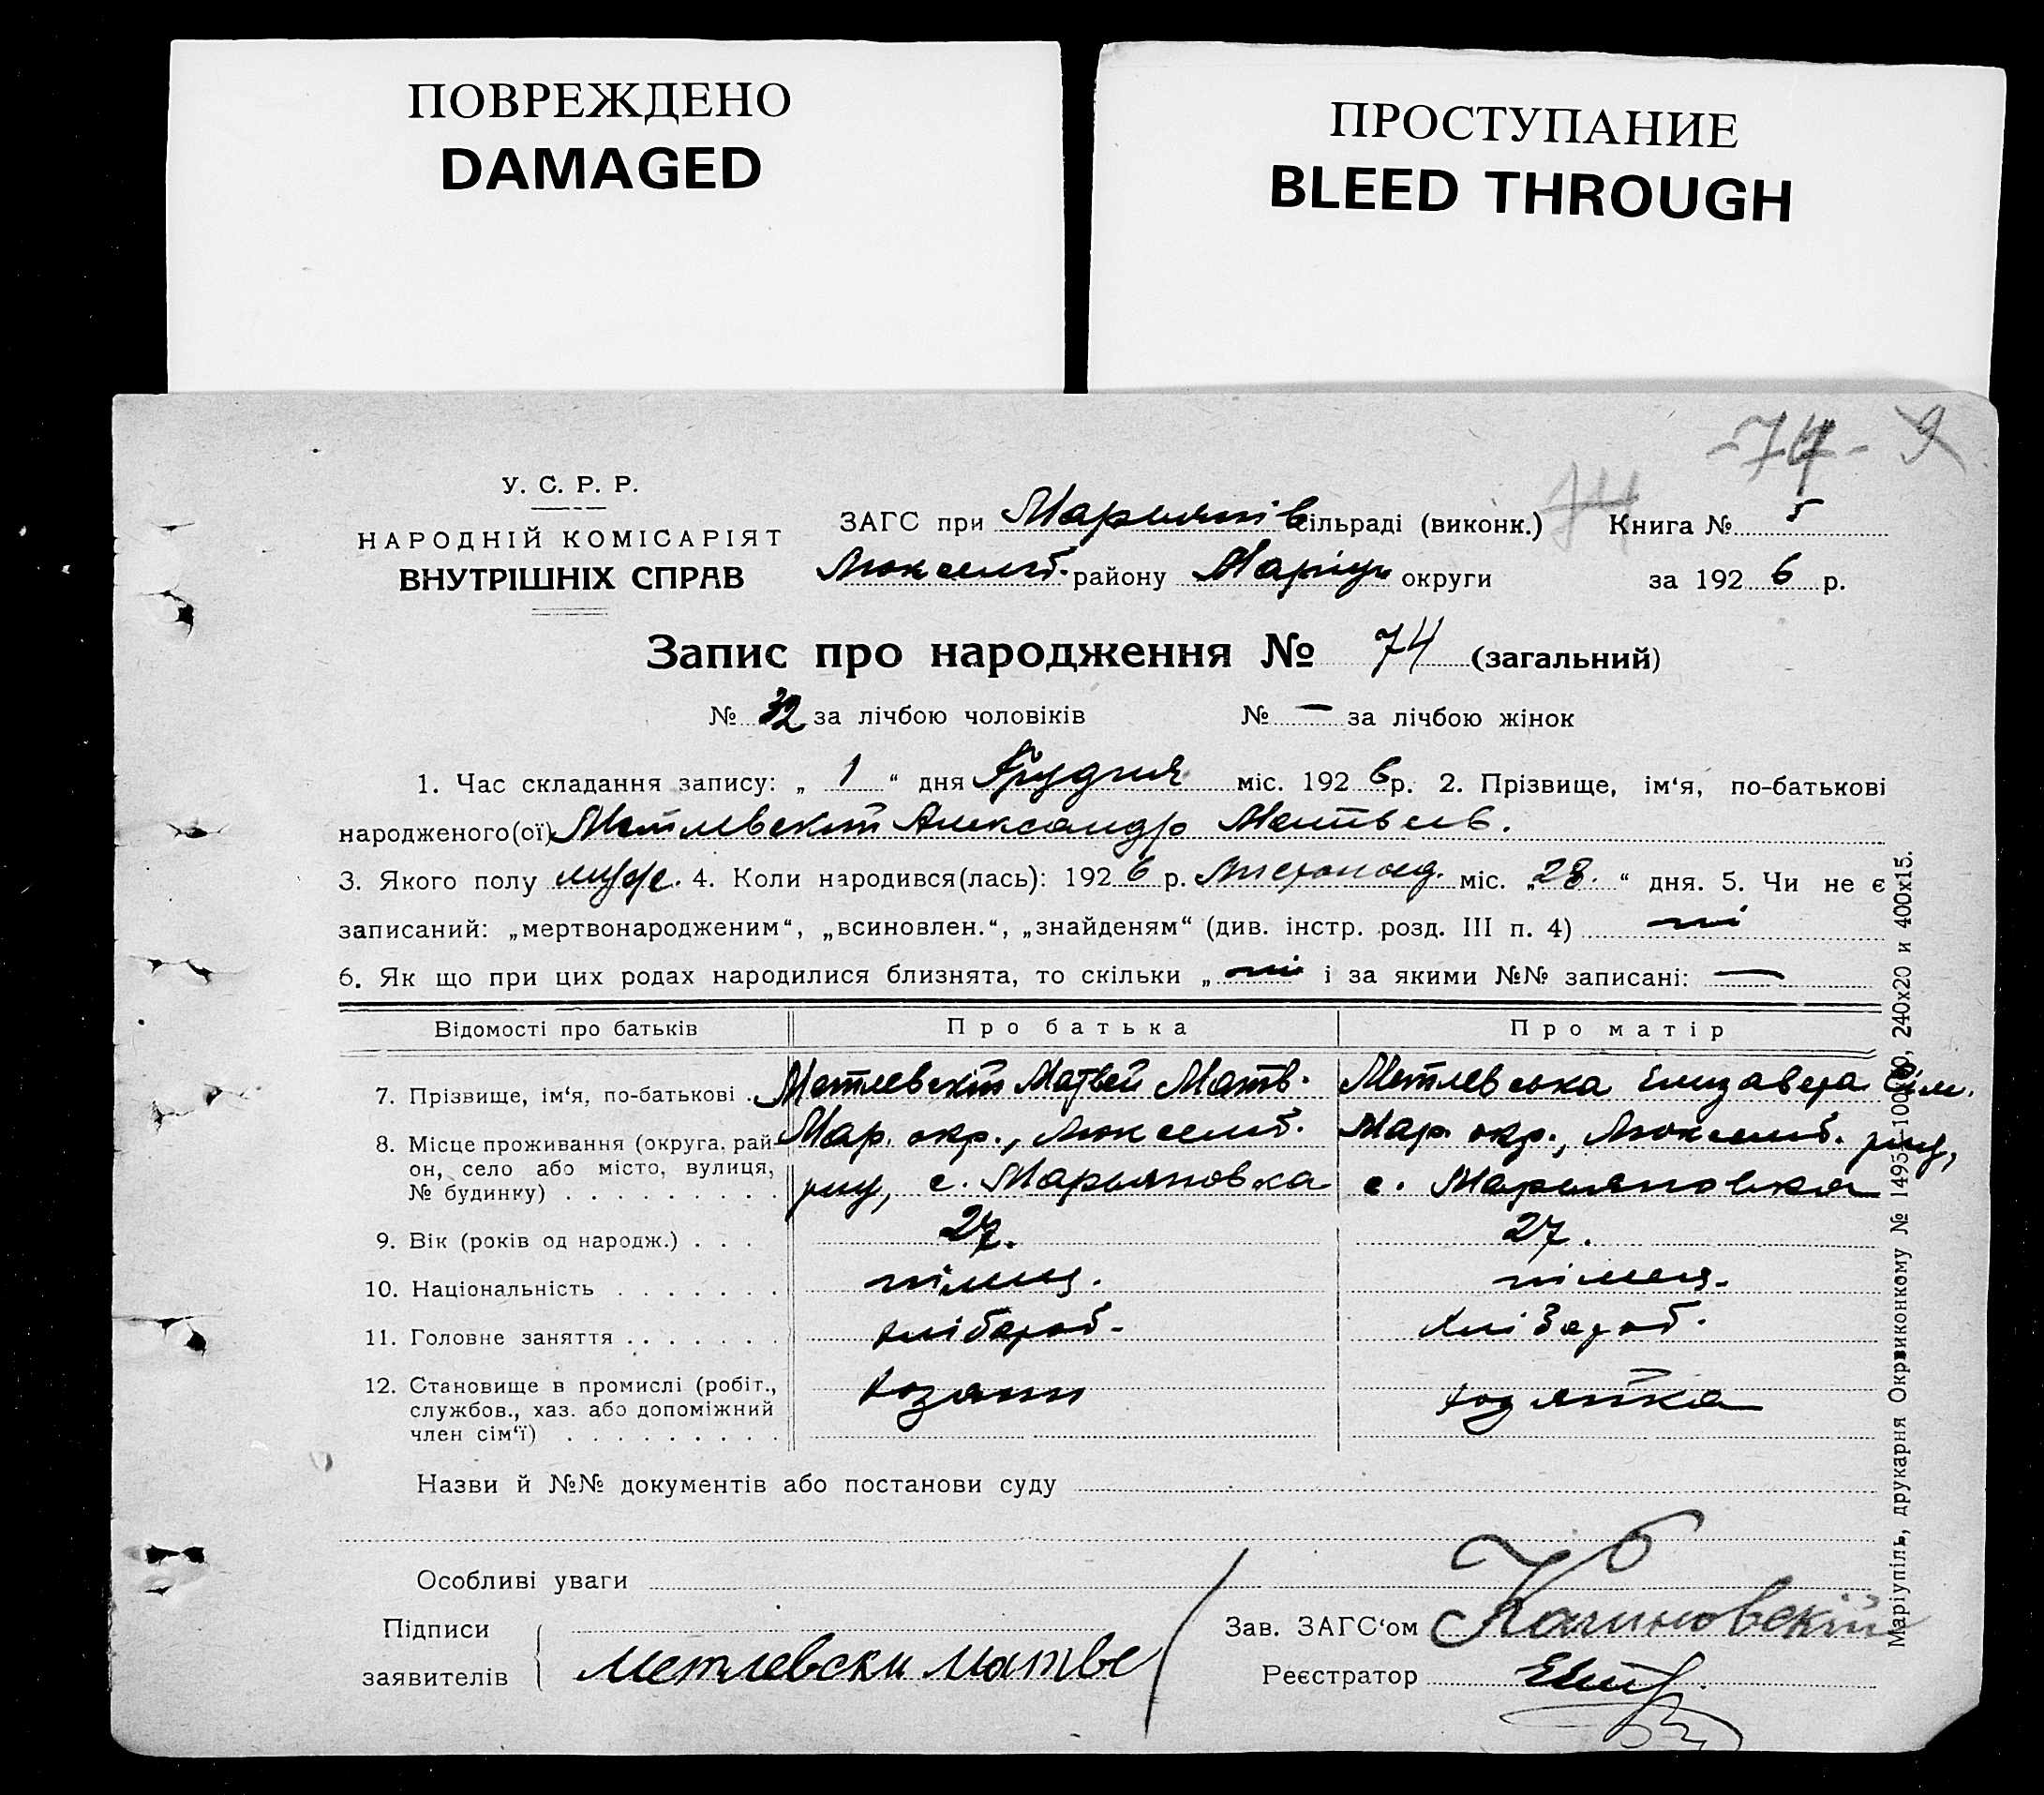 ПОВРЕЖДЕНО
DAMAGED
ПРОСТУПАНИЕ
BLEED THROUGH
-74- 9
74
У. С. Р. Р.
НАРОДНІЙ КОМІСАРІЯТ
ВНУТРІШНІХ СПРАВ
ЗАГС при Марьянів сільраді (виконк.) Книга №
Люксемб. району Маріуп округи за 1926 р.
Запис про народження № 74 (загальний)
№ 32 за лічбою чоловіків № — за лічбою жінок
1. Час складання запису: „ 1 “ дня Грудня міс. 1926 р. 2. Прізвище, ім‘я, по-батькові
народженого(ої) Метлевский Александр Матвеев.
3. Якого полу муж. 4. Коли народився(лась): 1926 р. Листопад. міс. „28.“ дня. 5. Чи не є
записаний: „мертвонародженим“, „всиновлен.“, „знайденям“ (див. інстр. розд. III п. 4) ні
6. Як що при цих родах народилися близнята, то скільки „ ні і за якими №№ записані: —
Відомості про батьків Про батька Про матір
7. Прізвище, ім‘я, по-батькові . Метлевский Матвей Матв. Метлевська Елизавета
8. Місце проживання (округа, рай- Мар. окр., Люксемб. Мар. окр., Люксемб. рну,
он, село або місто, вулиця,
№ будинку) . . . . . . . . . рну, с. Марьяновка с. Марьяновка
9. Вік (років од народж.) . . . 27. 27.
10. Національність . . . . . . . німец. німец.
11. Головне заняття . . . . . . . хлібороб. хлібороб.
12. Становище в промислі (робіт., хозяин хозяйка
службов., хаз. або допоміжний
член сім‘ї) . . . . . . . . .
Назви й №№ документів або постанови суду
Особливі уваги
Підписи
заявителів Метлевски Матве
Зав. ЗАГС‘ом Калиновский
Реєстратор
Маріупіль, друкарня Окрвиконкому № 1495—10000, 240x20 и 400x15.